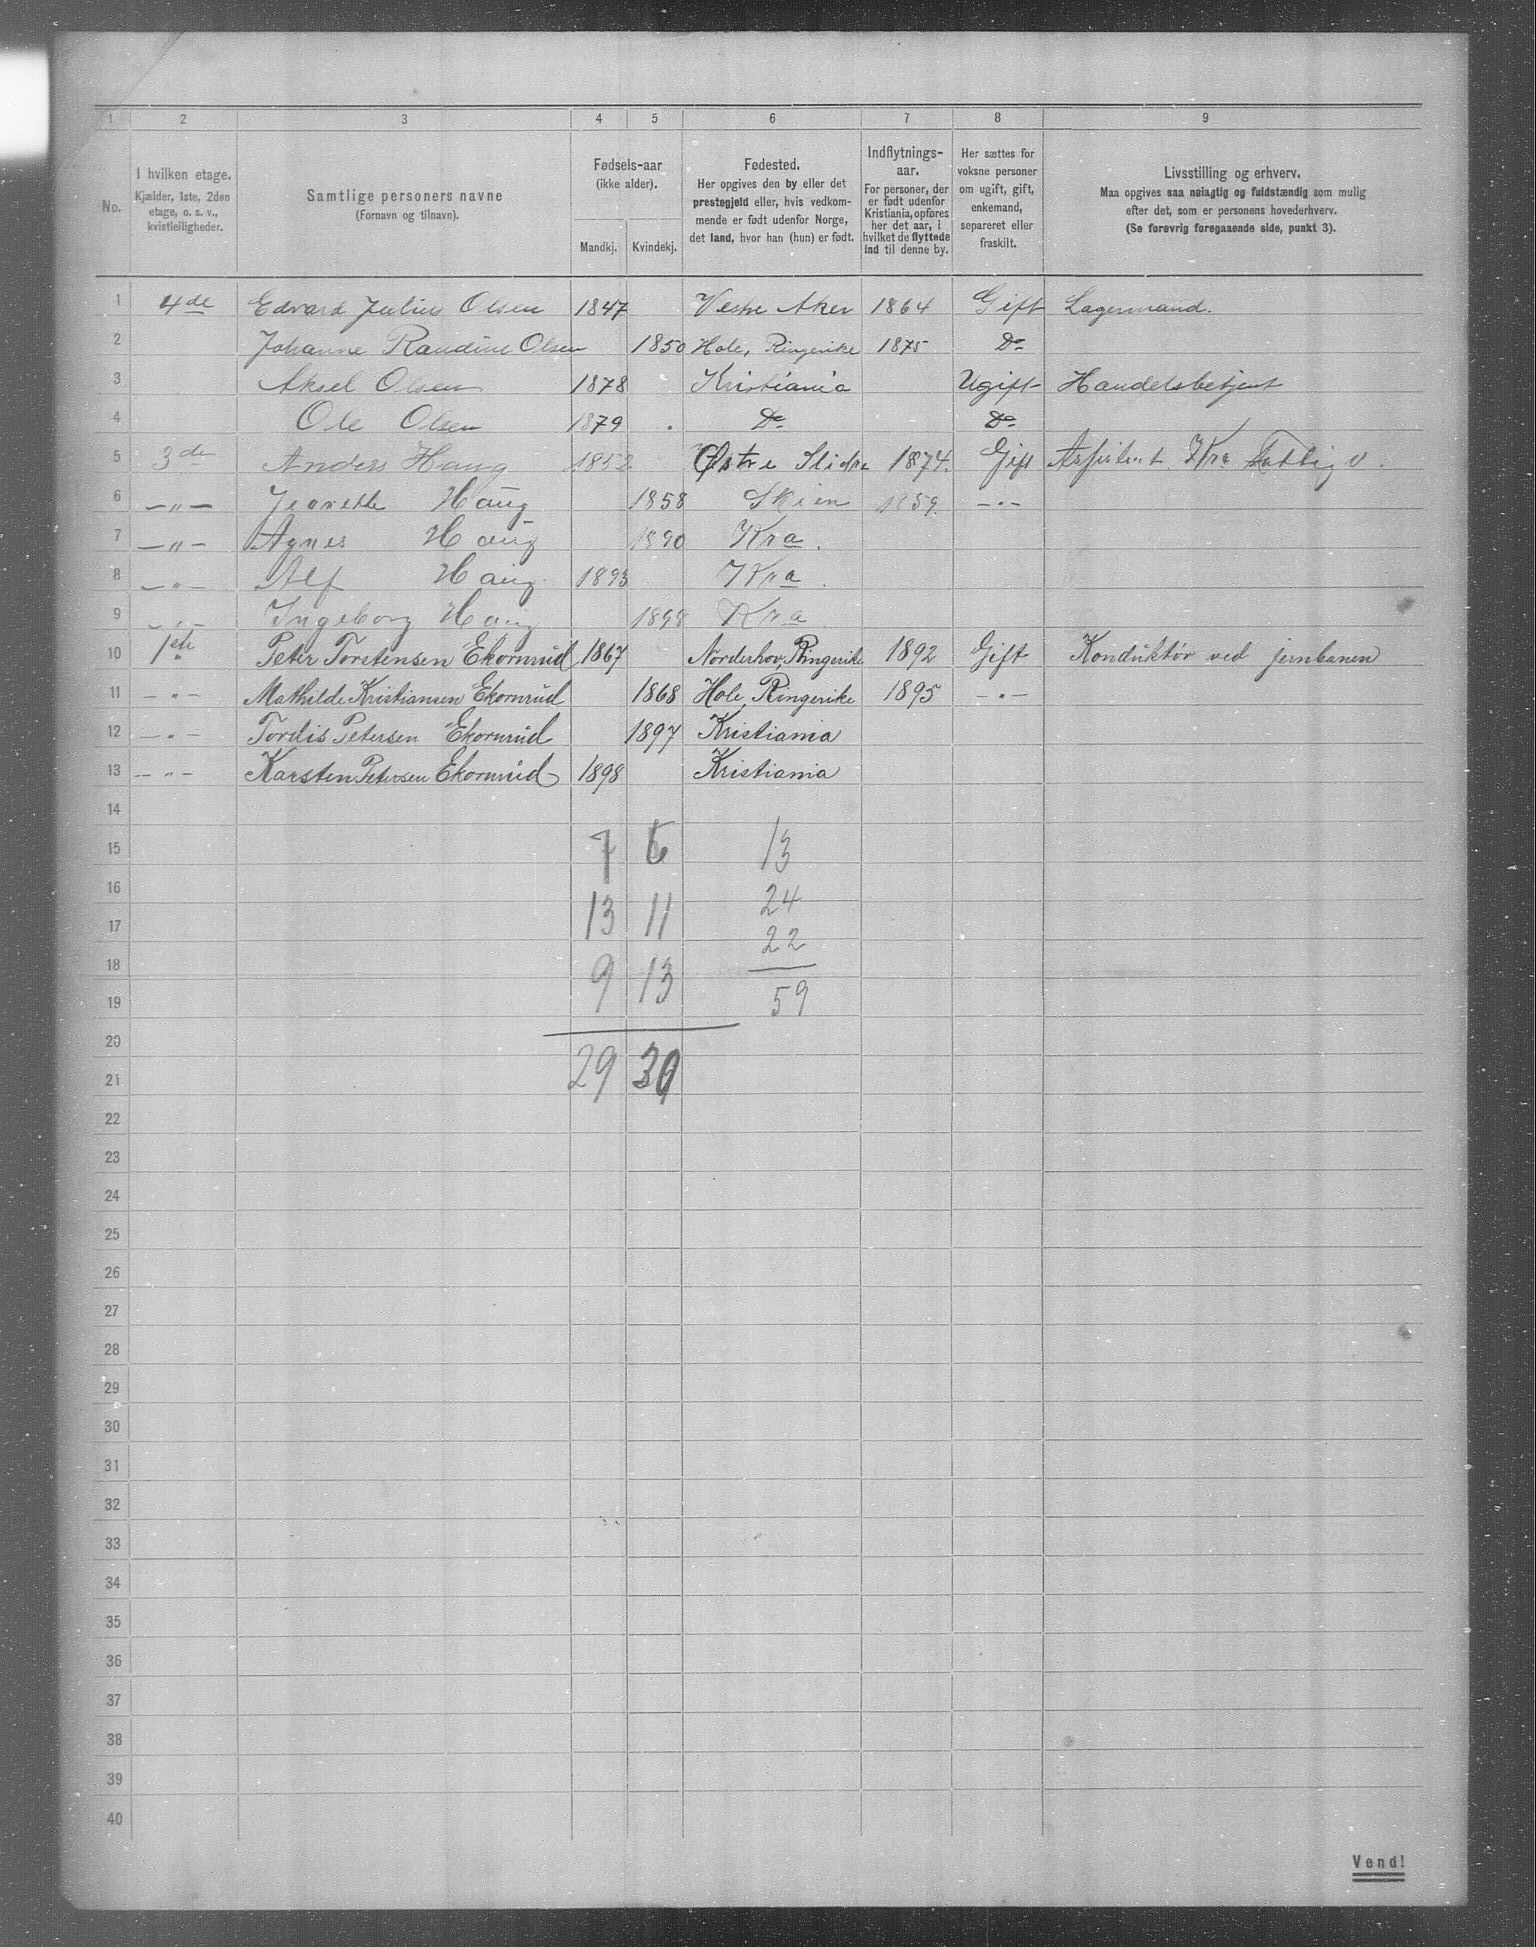 1 2 3 4 5 6 7 8 9
No. | I hvilken etage. Kjælder, 1ste, 2den etage, o. s. v., kvistleiligheder. | Samtlige personers navne (Fornavn og tilnavn). | Fødsels-aar (ikke alder). Mandkj. | Kvindekj. | Fødested. Her opgives den by eller det prestegjeld eller, hvis vedkommende er født udenfor Norge, det land, hvor han (hun) er født. | Indflytnings-aar. For personer, der er født udenfor Kristiania, opføres her det aar, i hvilket de flyttede ind til denne by. | Her sættes for voksne personer om ugift, gift, enkemand, separeret eller fraskilt. | Livsstilling og erhverv. Maa opgives saa nøiagtig og fuldstændig som mulig efter det, som er personens hovederhverv. (Se forøvrig foregaaende side, punkt 3).
1 4de Edvard Julius Olsen 1847 Vestre Aker 1864 Gift Lagermand.
2 Johanne Randine Olsen 1850 Hole, Ringerike 1875 Do
3 Aksel Olsen 1878 Kristiania Ugift Handelsbetjent
4 Ole Olsen 1879 Do Do
5 3de Anders Haug 1852 Østre Slidre 1874. Gift Assistent Kra Fattigv.
6 —„— Jeanette Haug 1858 Skien 1859. —„—
7 —„— Agnes Haug 1890 Kra.
8 —„— Alf Haug 1893 Kra.
9 —„— Ingeborg Haug 1898 Kra.
10 1ste Peter Torstensen Ekornrud 1867 Norderhov, Ringerike 1892 Gift Konduktør ved jernbanen
11 —„— Mathilde Kristiansen Ekornrud 1868 Hole, Ringerike 1895 —„—
12 —„— Tordis Petersen Ekornrud 1897 Kristiania
13 —„— Karsten Petersen Ekornrud 1898 Kristiania
14
15 7 6 13
16 24
17 13 11 22
18
19 9 13 59
20
21 29 30
22
23
24
25
26
27
28
29
30
31
32
33
34
35
36
37
38
39
40
Vend!